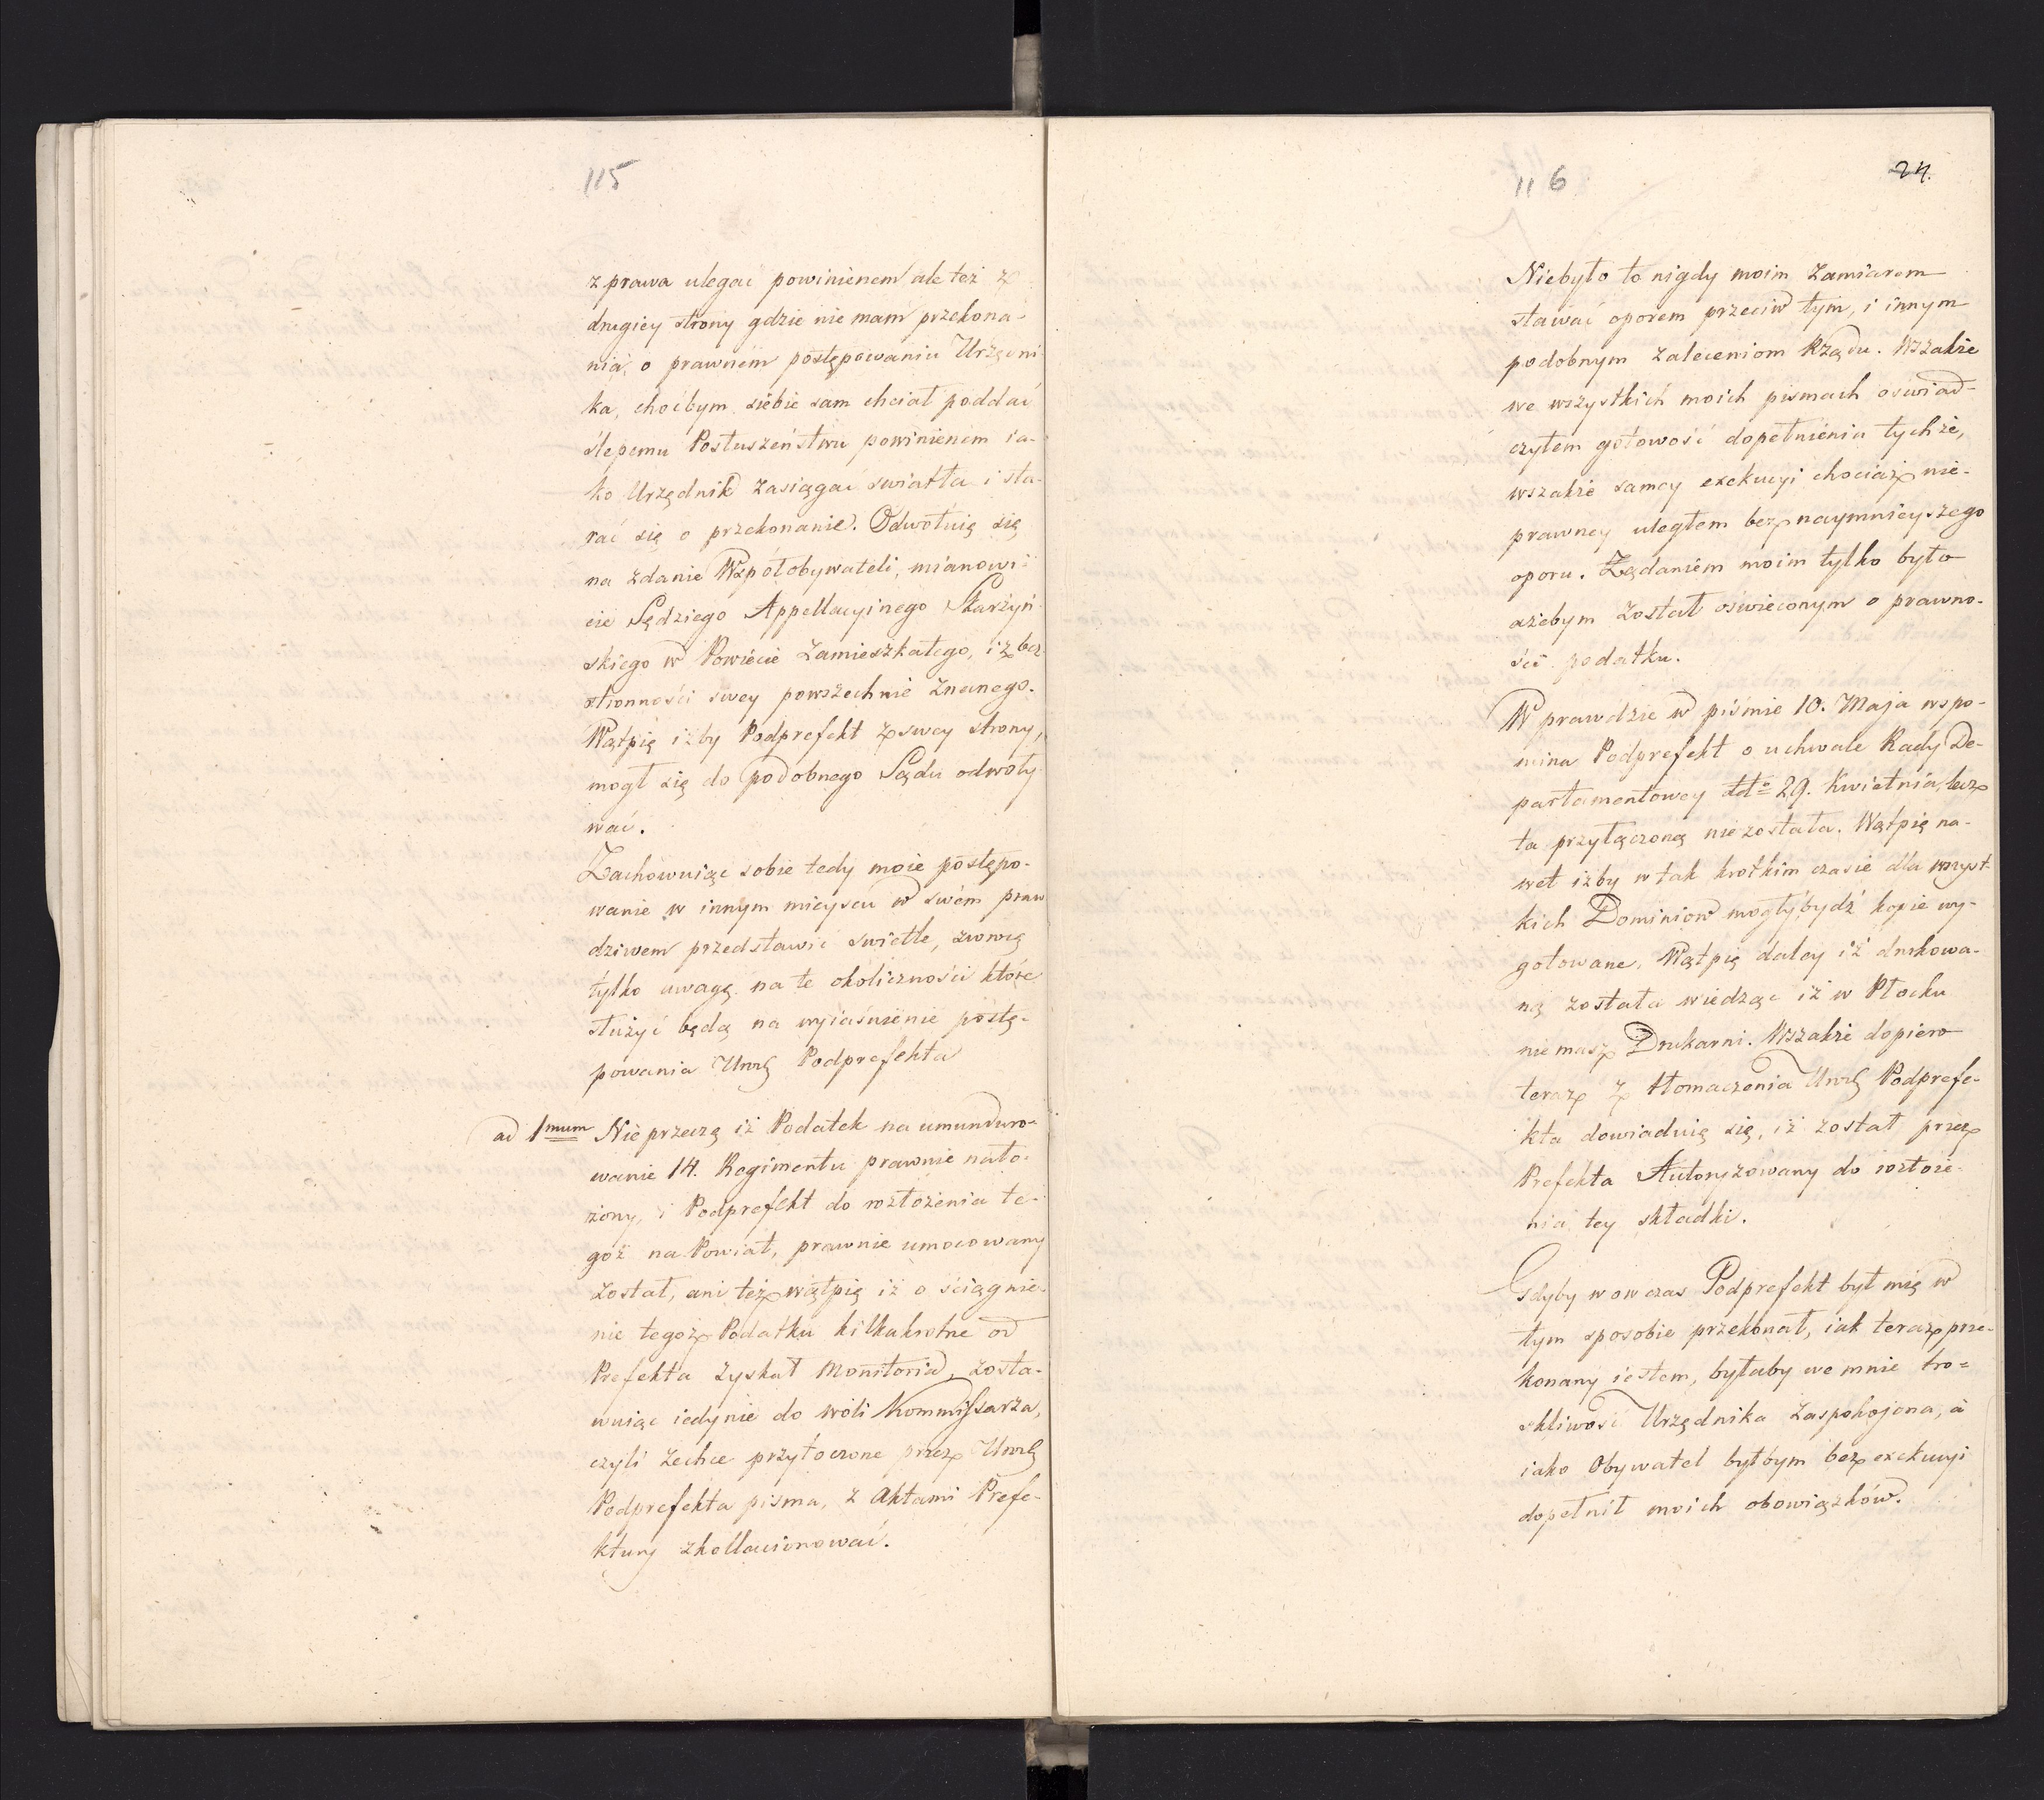 115
z prawa ulegać powinienem ale też z
drugiey strony gdzie nie mam przekona-
nia, o prawnem postępowaniu Urzędni-
ka, choćbym siebie sam chciał poddać
ślepemu Posłuszeństwu powinienem ia-
ko Urzędnik zasiągać swiatła i sta-
rać się o przekonanie. Odwołuię się
na zdanie Współobywateli, mianowi-
cie Sędziego Appellacyinego Starzyń-
skiego w Powiecie zamieszkałego, i z bez
stronności swey powszechnie znanego.
Wątpię iżby Podprefekt z swey strony,
mogł się do podobnego Sądu odwoły-
wać.
Zachowuiąc sobie tedy moie postępo-
wanie w innym mieyscu w swém praw
dziwem przedstawić swietle, zwrocę
tylko uwagę na te okoliczności które
służyć będą na wyiaśnienie postę-
powania Podprefekta
ad 1mum Nie przeczę iż Podatek na umunduro-
wanie 14. Regimentu prawnie nało-
żony, i Podprefekt do rozłożenia te-
goż na Powiat, prawnie umocowany
został, ani też wątpię iż o ściągnie-
nie tegoż Podatku kilkakrotne od
Prefekta zyskał Monitoria, zosta-
wuiąc iedynie do woli Kommissarza,
czyli zechce przytoczone przez
Podprefekta pisma, z Aktami Prefe-
ktury zkollacionować.
116
24.
Niebyło to nigdy moim zamiarem
stawać oporem przeciw tym, i innym
podobnym zaleceniom Rządu. Wszakże
we wszystkich moich pismach oswiad-
czyłem gotowość dopełnienia tychże,
wszakże samey exekucyi chociaż nie-
prawney uległem bez naymnieyszego
oporu. Żądaniem moim tylko było
ażebym został oświeconym o prawno-
ści podatku.
W prawdzie w piśmie 10. Maja wspo-
mina Podprefekt o uchwale Rady De-
partamentowey dto 29. Kwietnia, lecz
ta przyłączoną nie została. Wątpię na-
wet iżby w tak krotkim czasie dla wszyst-
kich Dominiow mogły bydź kopie wy-
gotowane, Wątpię daley iż drukowa-
ną została wiedząc iż w Płocku
nie masz Drukarni. Wszakże dopiero
teraz z tłomaczenia Podprefe-
kta dowiaduię się, iż został przez
Prefekta Autoryzowany do rozłoże-
nia tey składki.
Gdyby wowczas Podprefekt był mię w
tym sposobie przekonał, iak teraz prze-
konany iestem, byłaby we mnie tro-
skliwość Urzędnika zaspokojona, a
iako Obywatel byłbym bez exekucyi
dopełnił moich obowiązków.